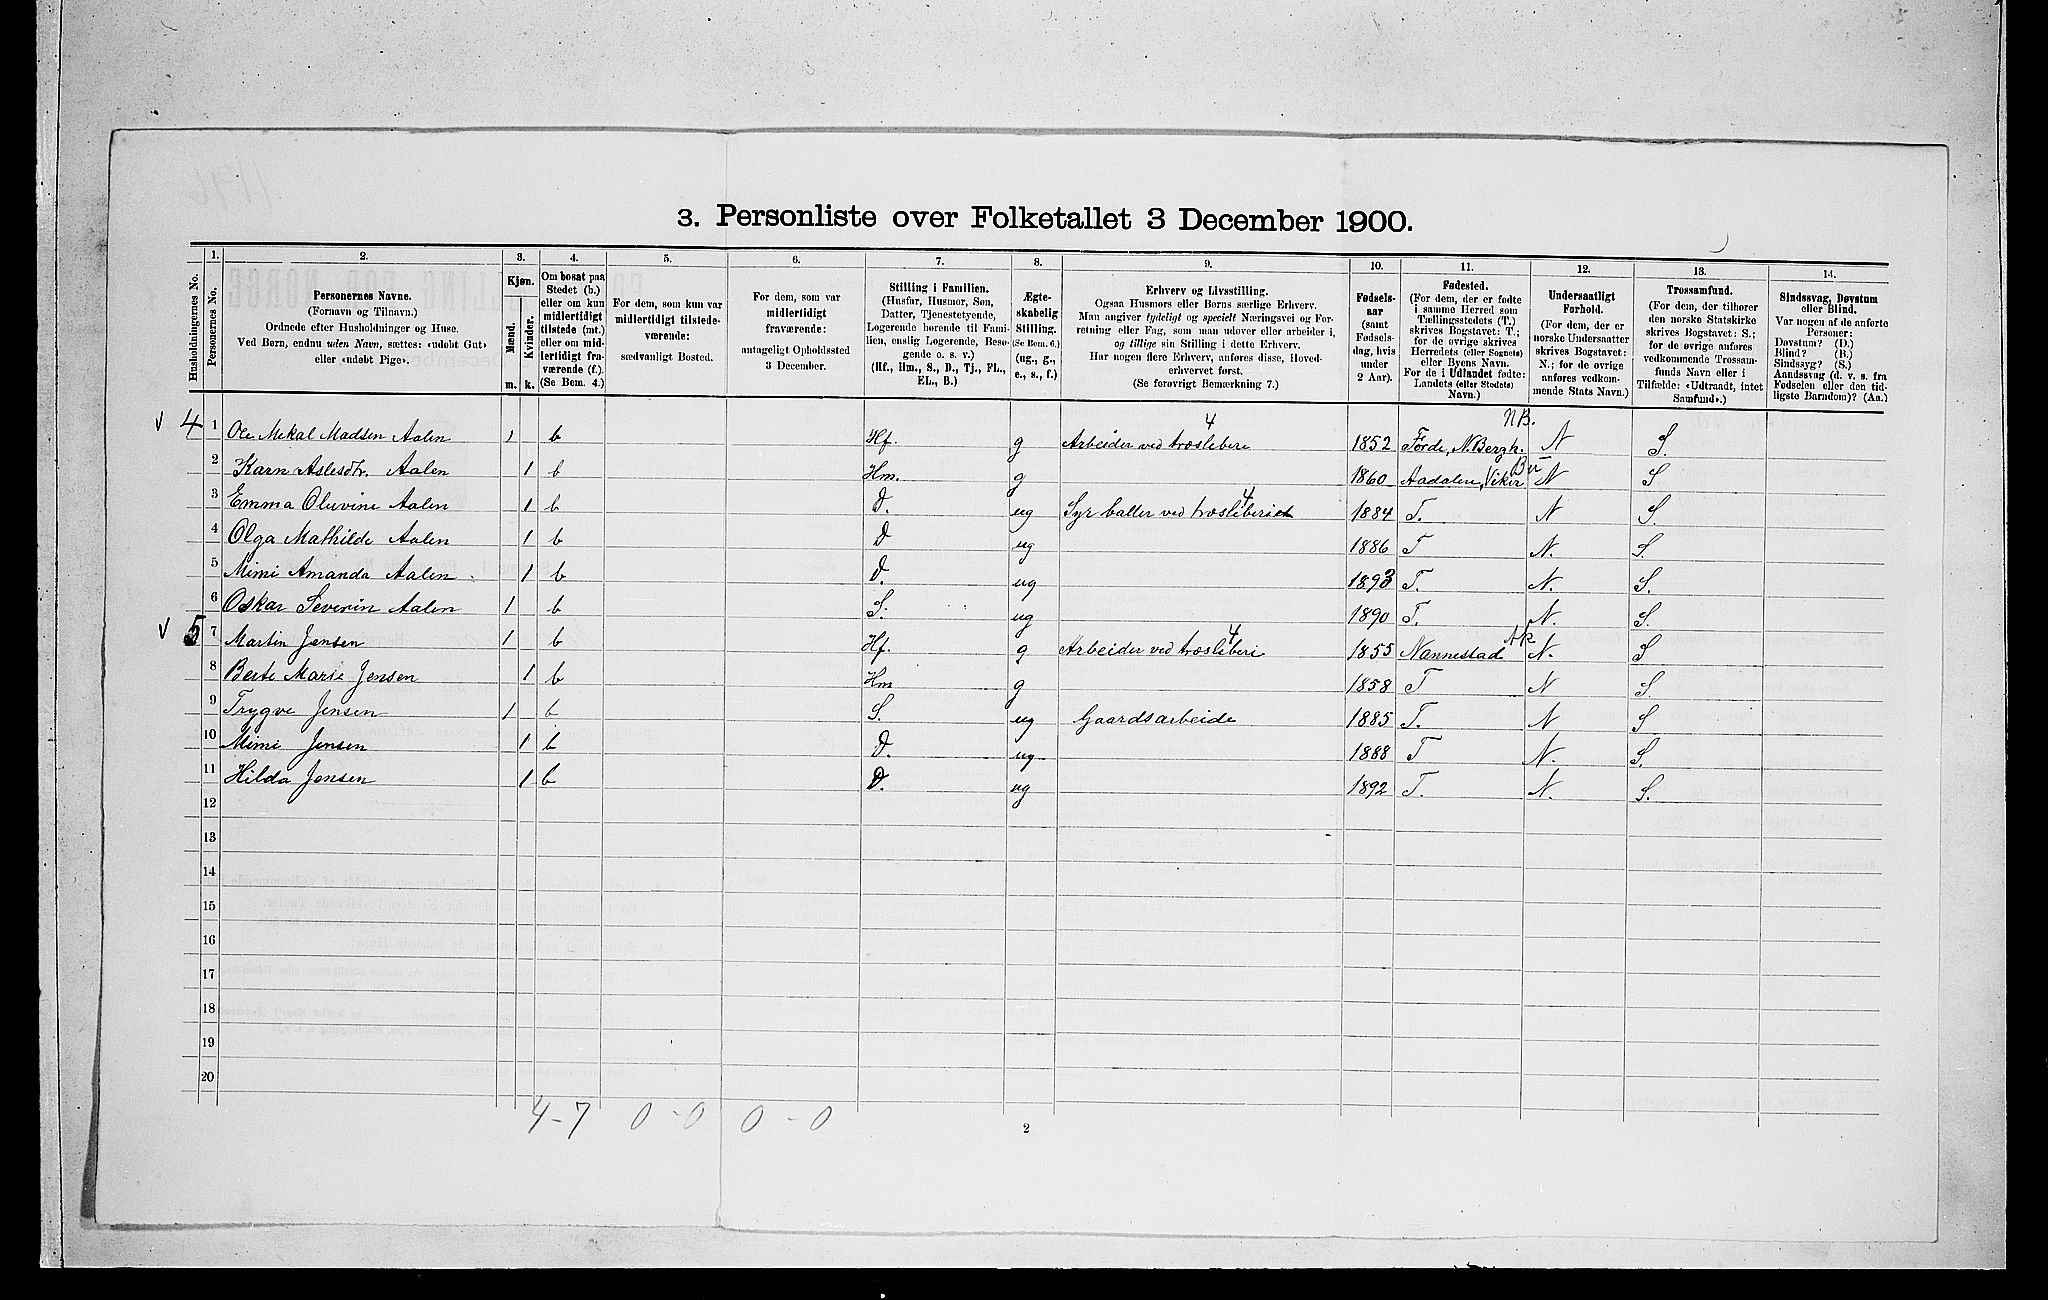 3. Personliste over Folketallet 3 December 1900.
Husholdningernes No.
1. Personernes No.
2. Personernes Navne. (Fornavn og Tilnavn.) Ordnede efter Husholdninger og Huse. Ved Børn, endnu uden Navn, sættes: «udøbt Gut» eller «udøbt Pige».
3. Kjøn. Mænd. m. Kvinder. k.
4. Om bosat paa Stedet (b.) eller om kun midlertidigt tilstede (mt.) eller om midlertidigt fraværende (f.) (Se Bem. 4.)
5. For dem, som kun var midlertidigt tilstedeværende: sædvanligt Bosted.
6. For dem, som var midlertidigt fraværende: antageligt Opholdssted 3 December.
7. Stilling i Familien. (Husfar, Husmor, Søn, Datter, Tjenestetyende, Logerende hørende til Familien, enslig Logerende, Besøgende o. s. v.) (Hf., Hm., S., D., Tj., FL., EL., B.)
8. Ægteskabelig Stilling. (Se Bem. 6.) (ug., g., e., s., f.)
9. Erhverv og Livsstilling. Ogsaa Husmors eller Børns særlige Erhverv. Man angiver tydeligt og specielt Næringsvei og Forretning eller Fag, som man udøver eller arbeider i, og tillige sin Stilling i dette Erhverv. Har nogen flere Erhverv, anføres disse, Hovederhvervet først. (Se forøvrigt Bemærkning 7.)
10. Fødselsaar (samt Fødselsdag, hvis under 2 Aar).
11. Fødested. (For dem, der er fødte i samme Herred som Tællingsstedets (T.) skrives Bogstavet: T.; for de øvrige skrives Herredets (eller Sognets) eller Byens Navn. For de i Udlandet fødte: Landets (eller Stedets) Navn.)
12. Undersaatligt Forhold. (For dem, der er norske Undersaatter skrives Bogstavet: N.; for de øvrige anføres vedkommende Stats Navn.)
13. Trossamfund. (For dem, der tilhører den norske Statskirke skrives Bogstavet: S.; for de øvrige anføres vedkommende Trossamfunds Navn eller i Tilfælde: «Udtraadt, intet Samfund».)
14. Sindssvag, Døvstum eller Blind. Var nogen af de anførte Personer: Døvstum? (D.) Blind? (B.) Sindssyg? (S.) Aandssvag (d. v. s. fra Fødselen eller den tidligste Barndom)? (Aa.)
v 4 1 Ole Mekal Madsen Aalen 1 b Hf. g Arbeider ved træsliberi 4 1852 Førde, N. Bergh. NB. N S.
2 Karn Aslesdtr. Aalen 1 b Hm. g 1860 Aadalen, Viker Bu N S
3 Emma Oluvine Aalen 1 b D. ug Syr baller ved træsliberiet 4 1884 T. N S.
4 Olga Mathilde Aalen 1 b D ug 1886 T N. S.
5 Mimi Amanda Aalen 1 b D. ug 1893 T. N. S.
6 Oskar Severin Aalen 1 b S. ug 1890 T. N. S.
v 5 7 Martin Jensen 1 b Hf. g Arbeider ved træsliberi 4 1855 Nannestad Ak N. S
8 Berte Marie Jensen 1 b Hm g 1858 T N S.
9 Trygve Jensen 1 b S. ug Gaardsarbeide 1885 T. N S
10 Mimi Jensen 1 b D. ug 1888 T N. S.
11 Hilda Jensen 1 b D. ug 1892 T. N. S.
12
13
14
15
16
17
18
19
20
4-7 0-0 0-0
2